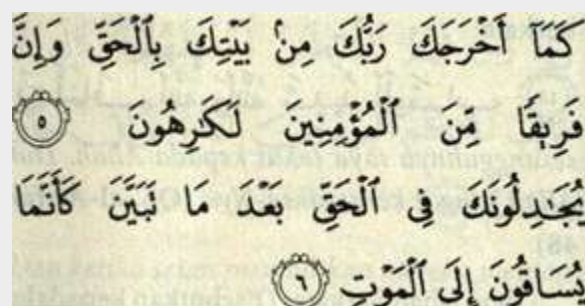 كَمَآ أَخْرَجَكَ رَبُّكَ مِنۢ بَيْتِكَ بِٱلْحَقِّ وَإِنَّ
فَرِيقًا مِّنَ ٱلْمُؤْمِنِينَ لَكَٰرِهُونَ ٥
يُجَٰدِلُونَكَ فِى ٱلْحَقِّ بَعْدَ مَا تَبَيَّنَ كَأَنَّمَا
يُسَاقُونَ إِلَى ٱلْمَوْتِ ٦